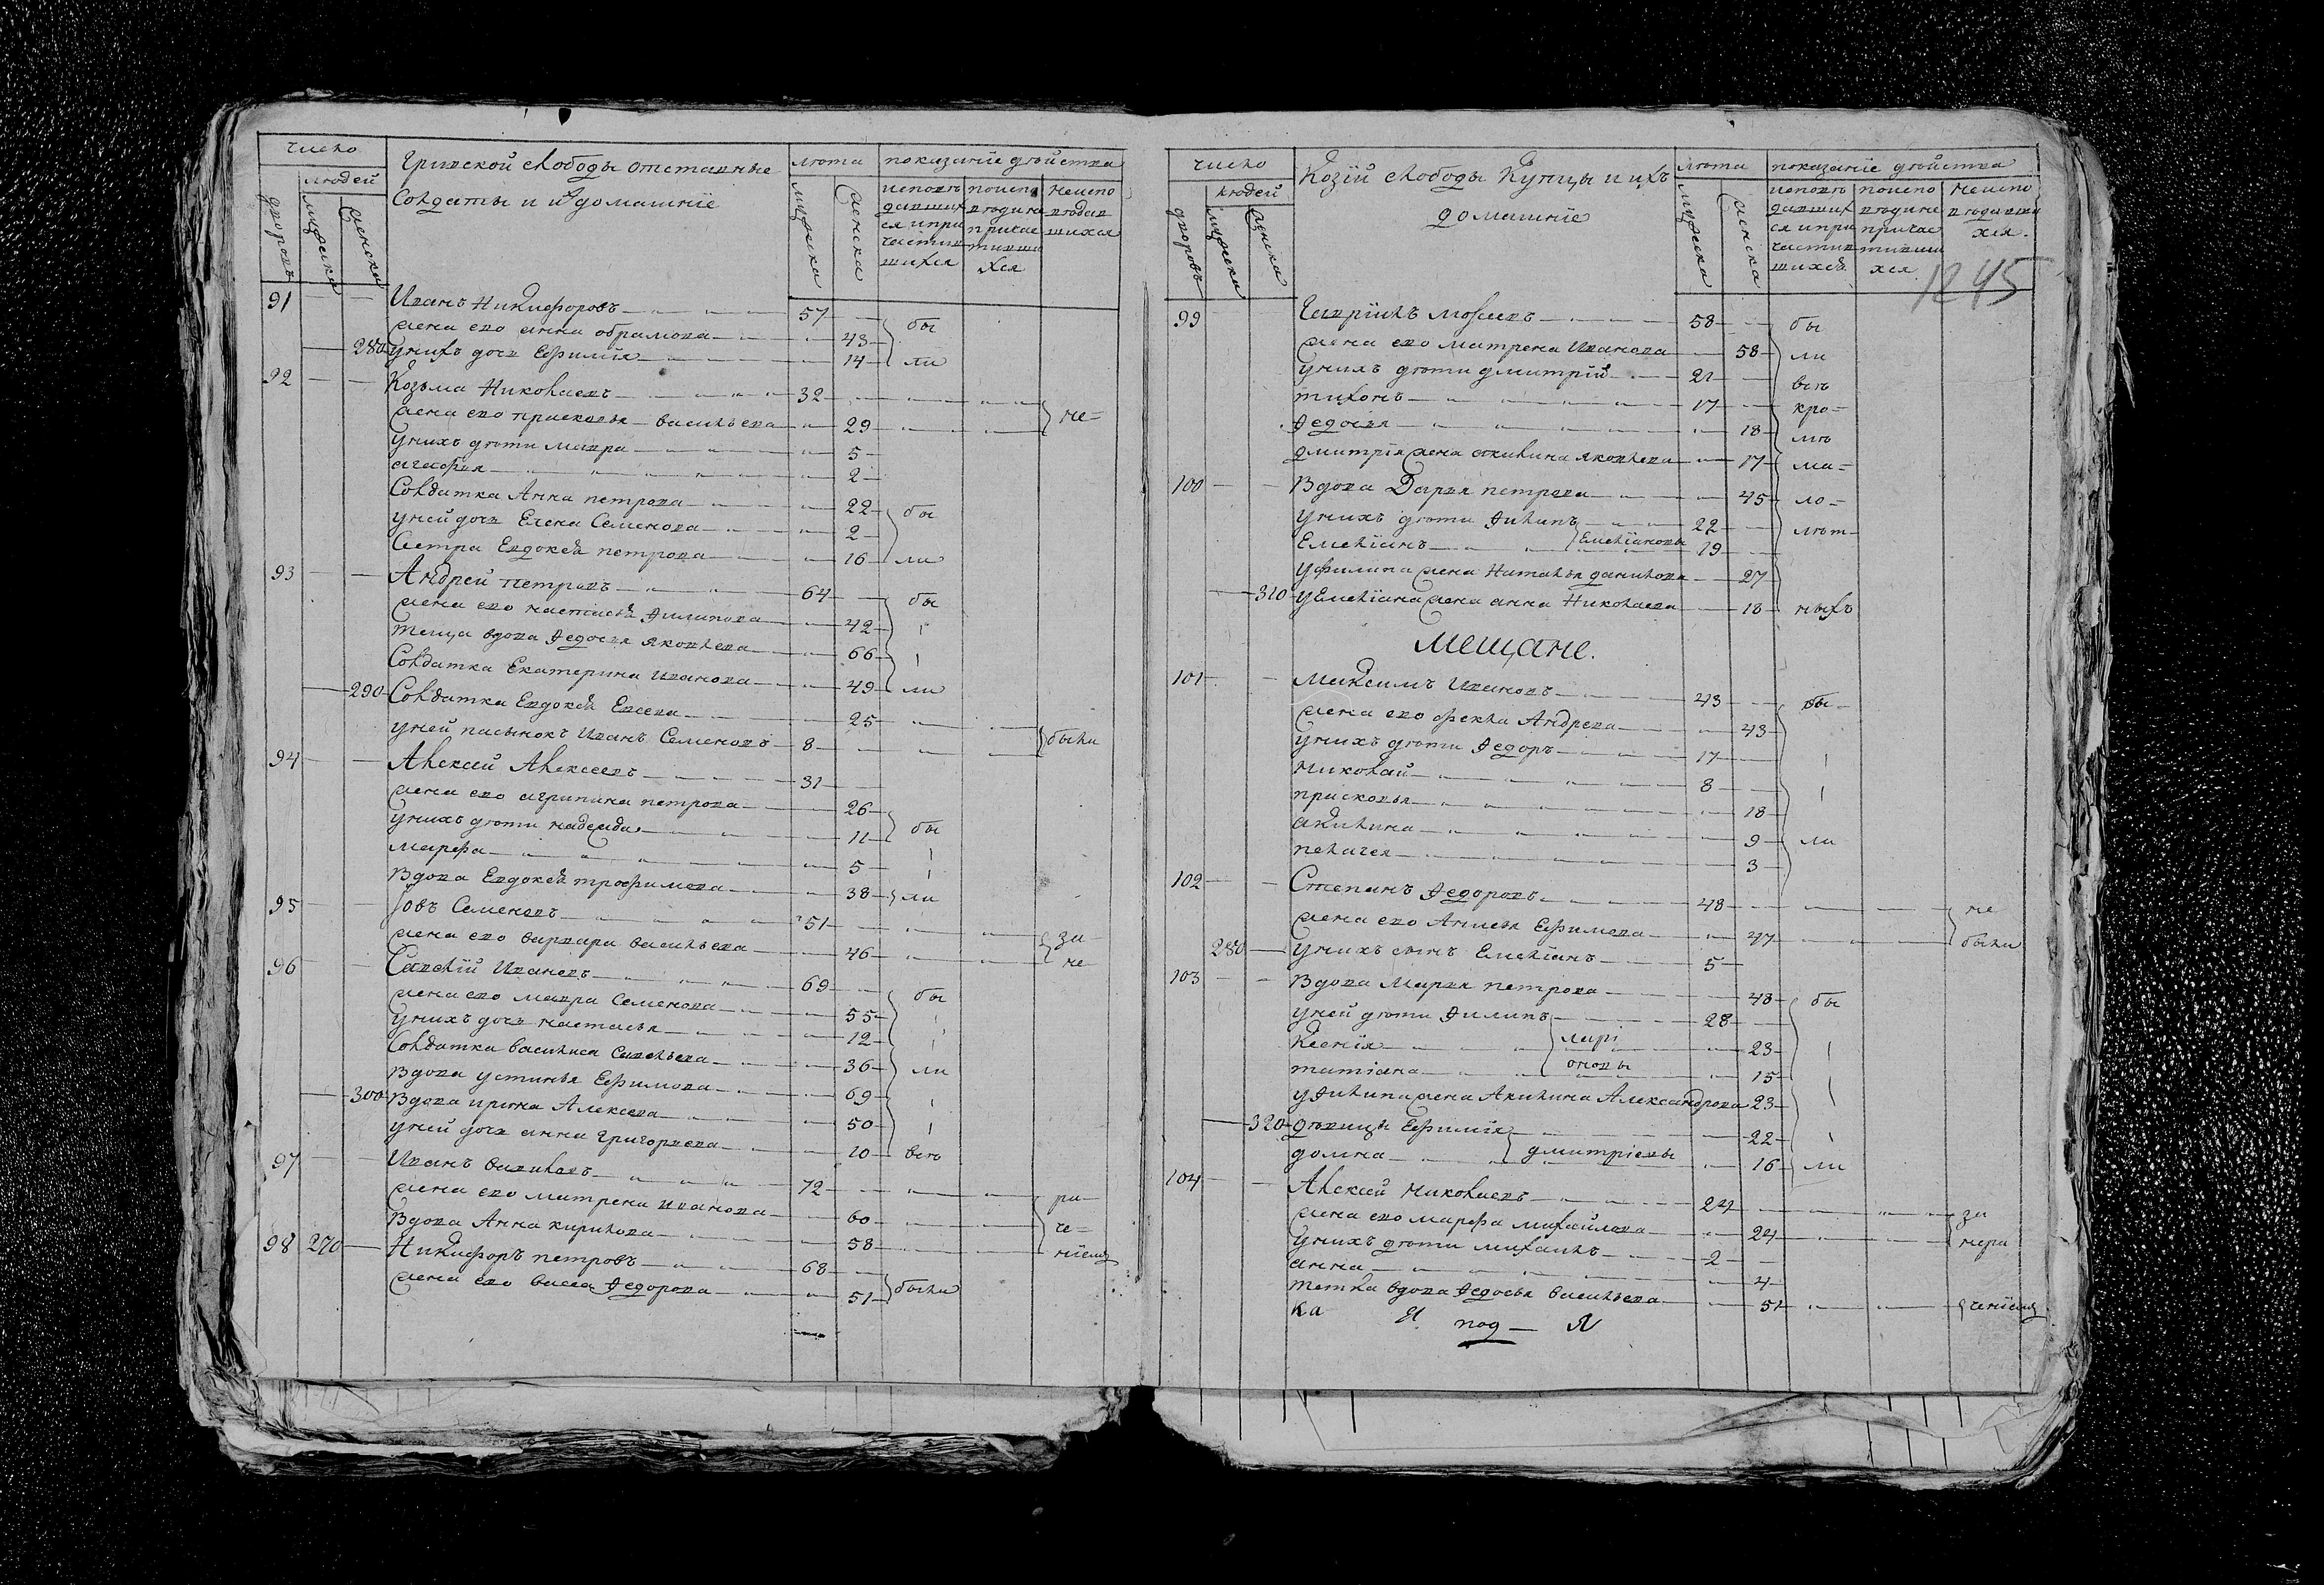 число
людей
дворовъ
мужеска
женска
Гривской слободы отставные
Солдаты и их домашнїе
лѣта
мужеска
женска
показанїе дѣйства
исповѣ
давших
ся и при
частив
шихся
поиспо
вѣди не
причас
тивши
хся
неиспо
вѣдав
шихся
91 — — Иванъ Никифоровъ 57
жена ево анна обрамова 43 бы
280 у них дочь Ефимїя 14 ли
92 — — Козьма Николаевъ 32
жена ево прасковья васильева 29 не
у нихъ дѣти мавра 5
агафья 2
Солдатка Анна петрова 22 бы
у ней дочь Елена Семенова 2
Сестра Евдокея петрова 16 ли
93 — — Андрей петровъ 64 бы
жена ево настасья Филипова 42
теща вдова Федосья яковлева 66
Солдатка Екатерина иванова 49 ли
290 Солдатка Евдокея Евсева 25
у ней пасынокъ Иванъ Семеновъ 8 были
94 — — Алексей Алексеевъ 31
жена ево агрипина петрова 26
у нихъ дѣти надежда 11 бы
марфа 5
Вдова Евдокея трофимова 38 ли
95 — — Іовъ Семеновъ 51
жена ево варвара васильева 46 за не
96 — — Савелїй Ивановъ 69
жена ево мавра Семенова 55 бы
у нихъ дочь настасья 12
Солдатка василиса Савельева 36 ли
Вдова устинья Ефимова 69
300 Вдова ирина Алексева 50
у ней дочь анна григорьева 10 всѣ
97 — — Иванъ васильевъ 72
жена ево матрена иванова 60 ра
Вдова Анна кирилова 58 че=
98 270 — Никифоръ петровъ 68 нїемъ
жена ево васса Федорова 51 были
число
людей
дворовъ
мужеска
женска
Козїй слободы Купцы и ихъ
домашнїе
лѣта
мужеска
женска
показанїе дѣйства
исповѣ
давших
ся и при
частив
шихся
поиспо
вѣди не
причас
тивши
хся
неиспо
вѣдавши
хся
1245
99 Гаврїилъ мосеевъ 58 бы
жена ево матрена Иванова 58 ли
у нихъ дѣти дмитрїй 21 всѣ
тихонъ 17 кро=
Федосья 18 мѣ
дмитрїя жена акилина яковлева 17 ма=
100 — — Вдова Дарья петрова 45 ло=
у нихъ дѣти Филипъ 22 лѣт=
Емелїанъ Емелїановы 19
у филипа жена Наталья данилова 27
310 у Емелїана жена анна Николаева 18 ныхъ
Мещане.
101 — — Максимъ Ивановъ 43 бы=
жена ево фекла Андрева 43
у нихъ дѣти Федоръ 17
николай 8
прасковья 18
акилина 9 ли
пелагея 3
102 — — Степанъ Федоровъ 48 не
жена ево Анисья Ефимова 47 были
280 у нихъ сынъ Емелїанъ 5
103 — — Вдова Марья петрова 48 бы
у ней дѣти Филипъ 28
Ксенїя ларі 23
татїана оновы 15
у Филипа жена Акилина Александрова 23
320 дѣвицы Ефимїя 22
домна дмитрїевы 16 ли
104 — — Алексей Николаевъ 24 за
жена ево марфа михайлова 24 нера
у нихъ дѣти михаилъ 2
анна 4
тетка вдова Федосья васильева 51 ченїемъ
ка
под